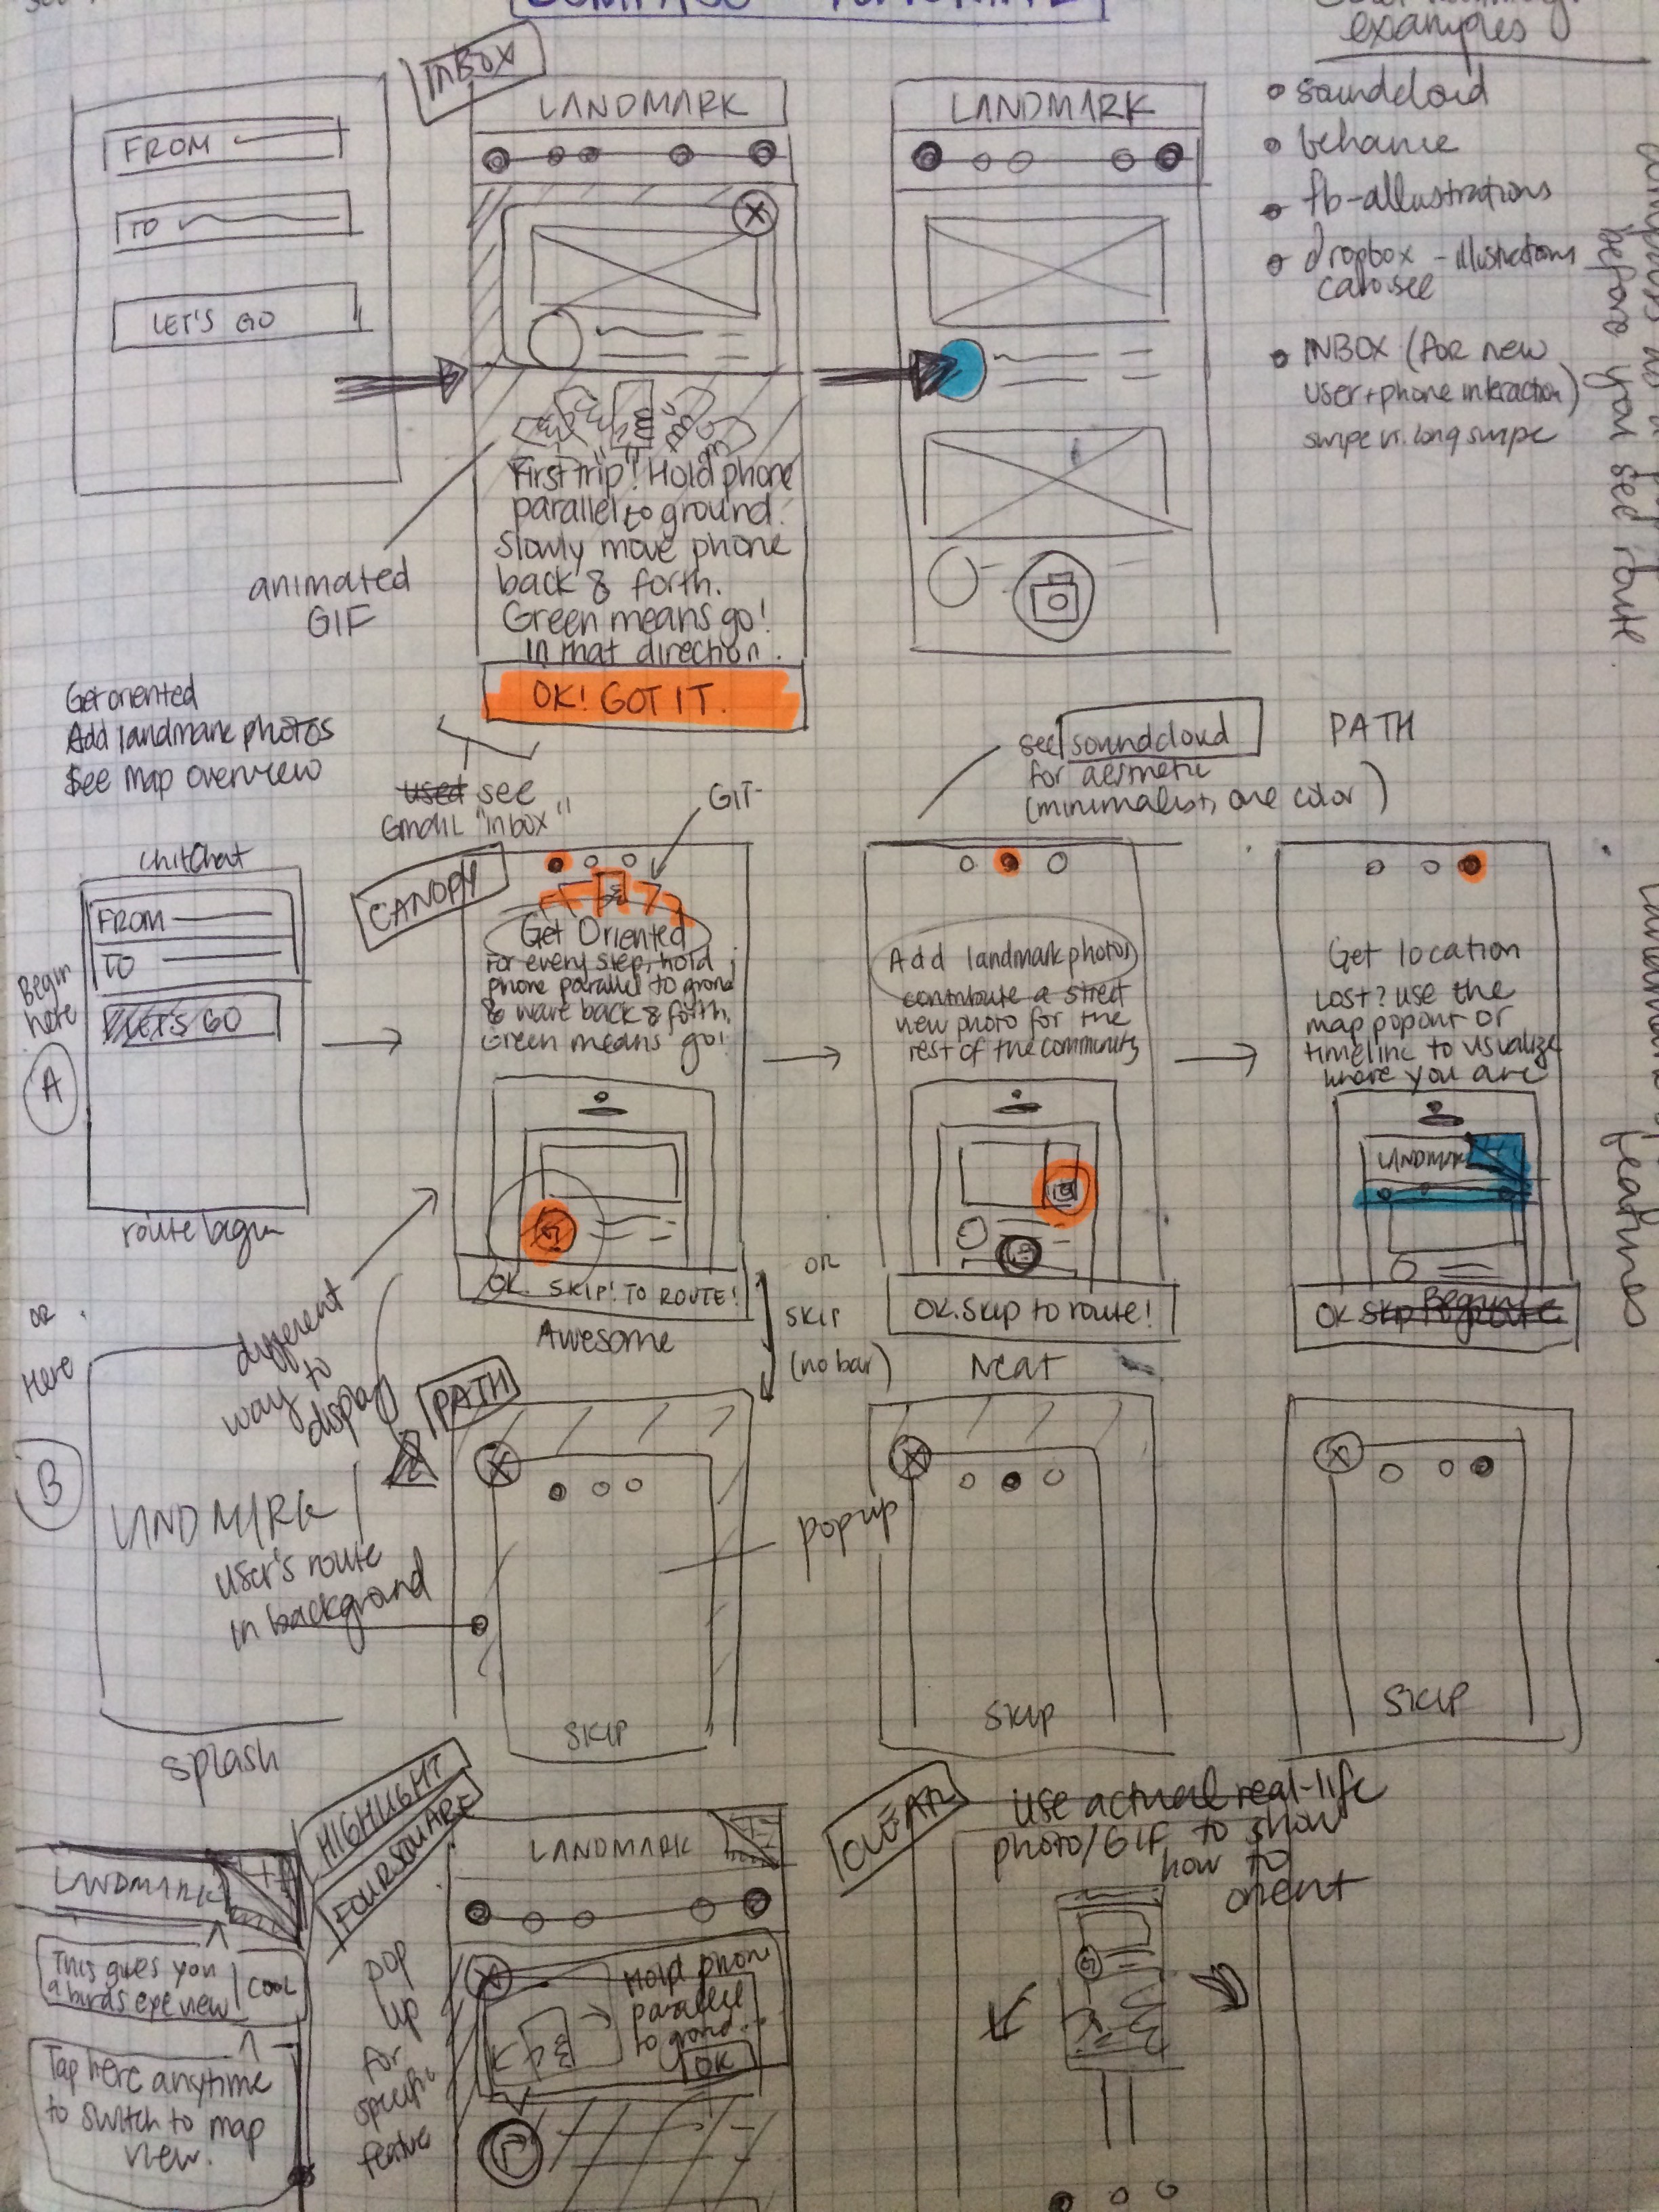 COMPASS TUTORIAL
examples
soundcloud
behance
fb-allustrations
dropbox - illustrations
carousel
INBOX (for new
user+phone interaction)
swipe vs. long swipe
before you see route
INBOX
FROM
TO
LET'S GO
LANDMARK
First trip! Hold phone
parallel to ground.
Slowly move phone
back & forth.
Green means go!
In that direction.
OK! GOT IT.
LANDMARK
animated
GIF
Get oriented
Add landmark photos
See map overview
used see
Gmail "inbox"
GIF
see soundcloud
for aesthetic
(minimalist, one color)
PATH
features
chitchat
FROM
TO
LET'S GO
Begin
here
A
route begun
CANOPY
Get Oriented
For every step, hold
phone parallel to ground
& wave back & forth.
Green means go!
OK. SKIP! TO ROUTE!
Awesome
Add landmark photos
contribute a street
view photo for the
rest of the community
OK. Skip to route!
Neat
Get location
Lost? use the
map popout or
timeline to visualize
where you are
LANDMARK
OK Skip to route
Begin
OR
SKIP
(no bar)
OR
Here
B
different
way
to
display
LANDMARK
splash
user's route
in background
PATH
SKIP
popup
SKIP
SKIP
HIGHLIGHT
FOURSQUARE
LANDMARK
This gives you
a birds eye view
COOL
Tap here anytime
to switch to map
view.
pop
up
for
specific
feature
LANDMARK
Hold phone
parallel
to ground...
OK
CLEAR
use actual real-life
photo/GIF to show
how to
orient